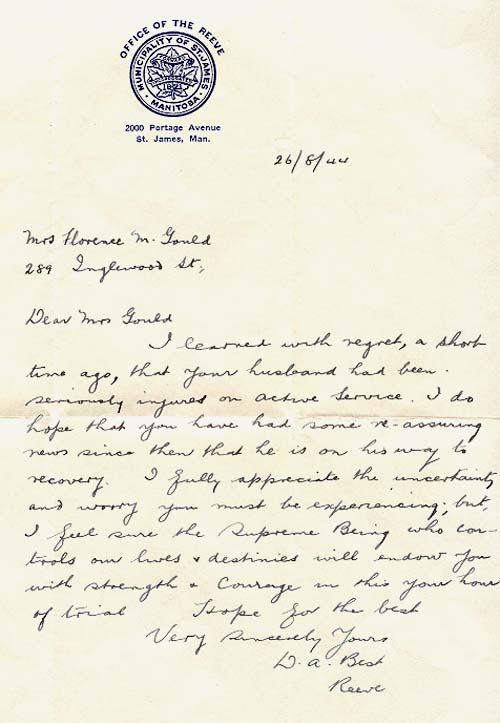 OFFICE OF THE REEVE
MUNICIPALITY OF ST. JAMES
MANITOBA
2000 Portage Avenue
St. James, Man.
26/8/44
Mrs Florence M. Gould
289 Inglewood St,
Dear Mrs Gould
I learned with regret, a short
time ago, that your husband had been
seriously injured on active service. I do
hope that you have had some re-assuring
news since then that he is on his way to
recovery. I fully appreciate the uncertainty
and worry you must be experiencing; but,
I feel sure the Supreme Being who con-
trols our lives & destinies will endow you
with strength & Courage in this your hour
of trial Hope for the best
Very Sincerely Yours
D. A. Best
Reeve